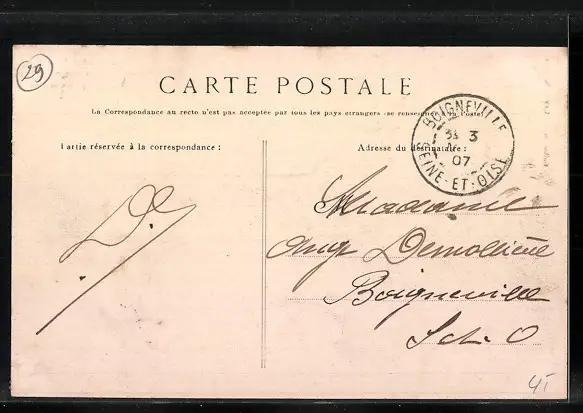 29
CARTE POSTALE
La Correspondance au recto n'est pas acceptée par tous les pays etrangers (se renseigner à la Poste)
Partie réservée à la correspondance :
Adresse du destinataire :
BOIGNEVILLE
31 3
07
SEINE-ET-OISE
Madame
Boigneville
S. et. O